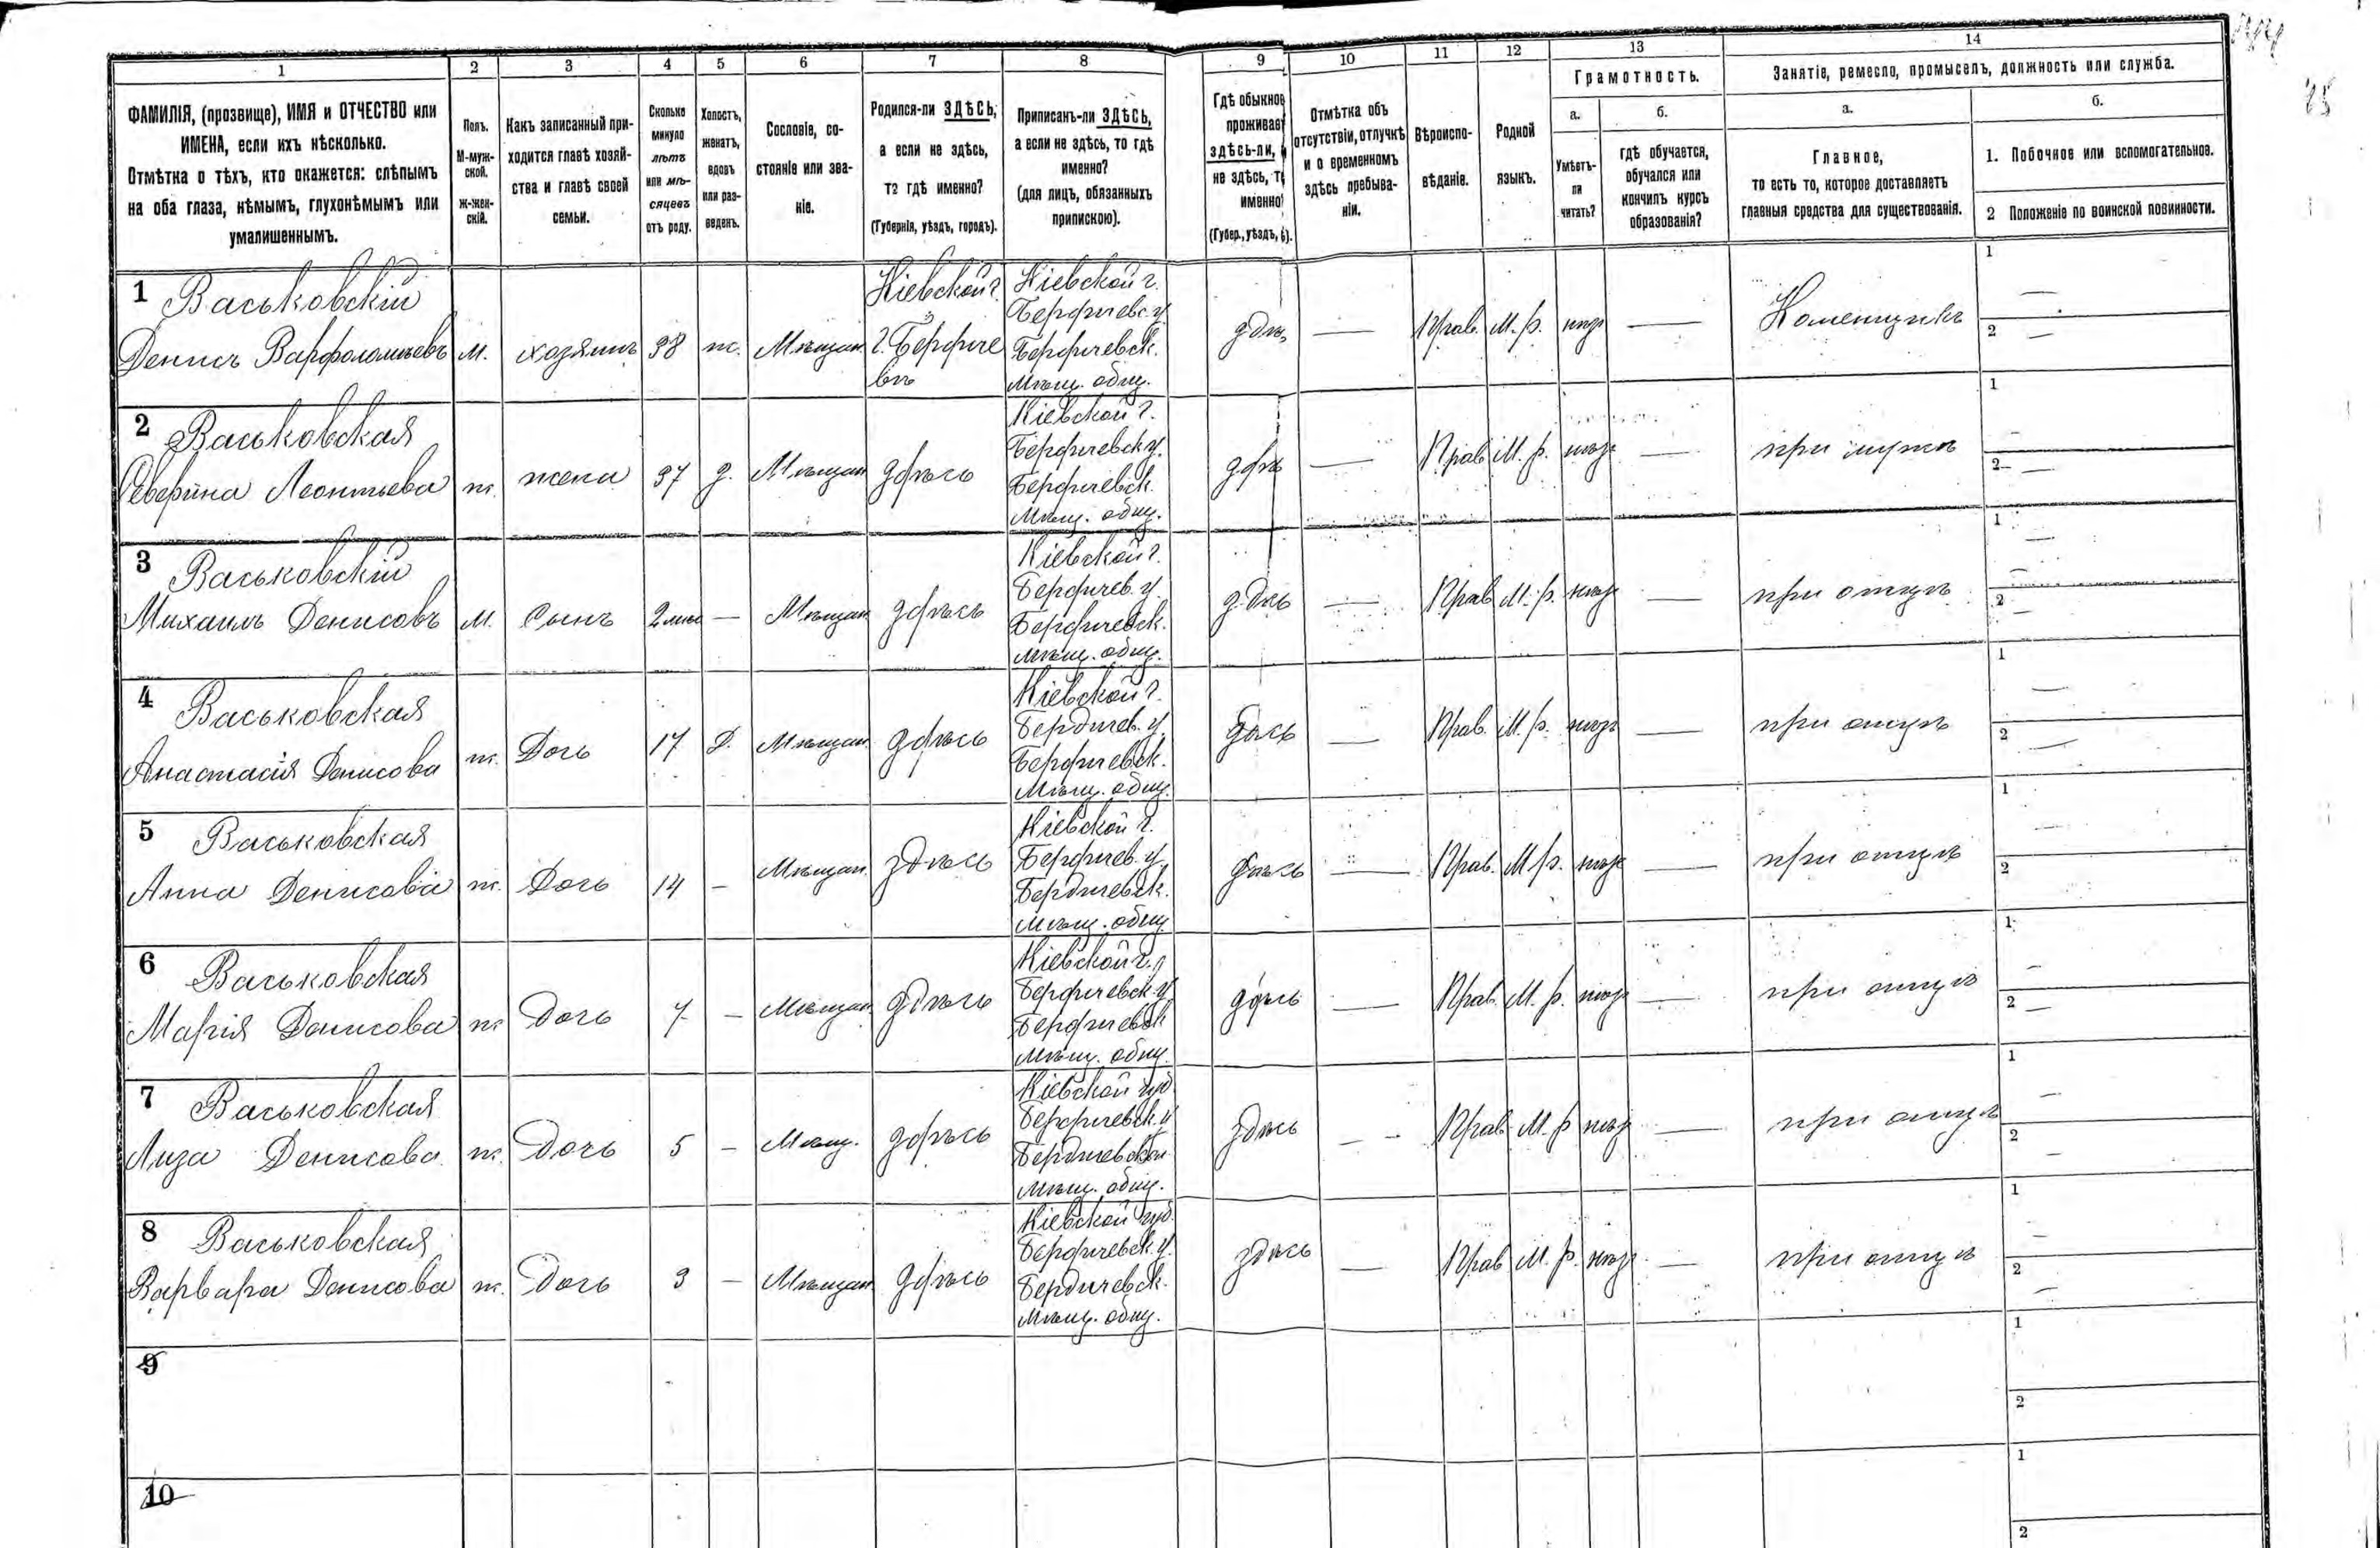 1 2 3 4 5 6 7 8 9 10 11 12 13 14
ФАМИЛІЯ, (прозвище), ИМЯ и ОТЧЕСТВО или
ИМЕНА, если ихъ нѣсколько.
Отмѣтка о тѣхъ, кто окажется: слѣпымъ
на оба глаза, нѣмымъ, глухонѣмымъ или
умалишеннымъ.
Полъ.
М-муж-
ской.
Ж-жен-
скій.
Какъ записанный при-
ходится главѣ хозяй-
ства и главѣ своей
семьи.
Сколько
минуло
лѣтъ
или мѣ-
сяцевъ
отъ роду.
Холостъ,
женатъ,
вдовъ
или раз-
веденъ.
Сословіе, со-
стояніе или зва-
ніе.
Родился-ли ЗДѢСЬ,
а если не здѣсь,
то гдѣ именно?
(Губернія, уѣздъ, городъ).
Приписанъ-ли ЗДѢСЬ,
а если не здѣсь, то гдѣ
именно?
(для лицъ, обязанныхъ
припискою).
Гдѣ обыкнов
проживает
ЗДѢСЬ-ЛИ,
не здѣсь, т
именно
(Губер., уѣздъ, ).
Отмѣтка объ
отсутствіи, отлучкѣ
и о временномъ
здѣсь пребыва-
ніи.
Вѣроиспо-
вѣданіе.
Родной
языкъ.
Грамотность.
а.
Умѣетъ-
ли
читать?
б.
гдѣ обучается,
обучался или
кончилъ курсъ
образованія?
Занятіе, ремесло, промыселъ, должность или служба.
а.
Главное,
то есть то, которое доставляетъ
главныя средства для существованія.
б.
1. Побочное или вспомогательное.
2 Положеніе по воинской повинности.
1 Васьковскій
Денисъ Варфоломѣевъ
М.
хозяинъ
38
ж.
Мѣщан.
Кіевской г.
г. Бердиче
въ
Кіевской г.
Бердичевс. у.
Бердичевск.
Мѣщ. общ.
здѣ
—
Прав.
М. р.
—
1 —
2 —
2 Васьковская
Северина Леонтьева
ж.
жена
37
З.
Мѣщан
здѣсь
Кіевской г.
Бердичевск. у.
Бердичевск.
Мѣщ. общ.
здѣ
—
Прав
М. р.
—
при мужѣ
1 —
2 —
3 Васьковскій
Михаилъ Денисовъ
М.
Сынъ
—
Мѣщан
здѣсь
Кіевской г.
Бердичев. у.
Бердичевск.
мѣщ. общ.
здѣсь
—
Прав
М. р.
—
при отцѣ
1 —
2 —
4 Васьковская
Анастасія Денисова
ж.
Дочь
17
Д.
Мѣщан.
здѣсь
Кіевской г.
Бердичев. у.
Бердичевск.
Мѣщ. общ.
здѣсь
—
Прав.
М. р.
—
при отцѣ
1 —
2 —
5 Васьковская
Анна Денисова
ж.
Дочь
14
—
Мѣщан.
здѣсь
Кіевской г.
Бердичев. у.
Бердичевск.
мѣщ. общ.
здѣсь
—
Прав.
М. р.
—
при отцѣ
1 —
2
6 Васьковская
Марія Денисова
ж
Дочь
7
—
Мѣщан
здѣсь
Кіевской г.
Бердичевск. у.
Бердичевск
мѣщ. общ.
здѣсь
—
Прав.
М. р.
—
при отцѣ
1 —
2 —
7 Васьковская
Лиза Денисова
ж.
Дочь
5
—
Мѣщ.
здѣсь
Кіевской губ
Бердичевск. у
Бердичевской
Мѣщ. общ.
здѣсь
— -
Прав
М. р
—
при отцѣ
1 —
2 —
8 Васьковская
Варвара Денисова
ж.
Дочь
3
—
Мѣщан
здѣсь
Кіевской губ.
Бердичевск. у.
Бердичевск.
Мѣщ. общ.
здѣсь
—
Прав
М. р.
—
при отцѣ
1 —
2 —
9
1
2
10
1
2